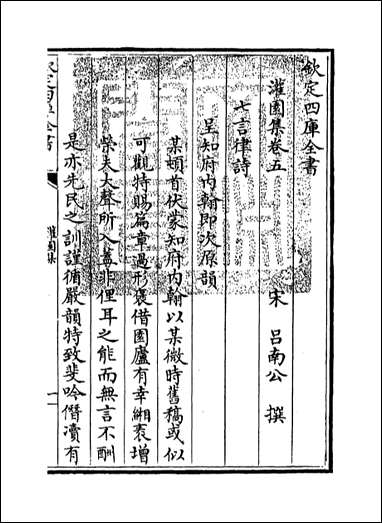 欽定四庫全書
灌園集卷五
宋 呂南公 撰
七言律詩
呈知府内翰即次原韻
某頓首伏蒙知府内翰以某微時舊稿或似
可觀特賜篇章過形褒借園廬有幸緗袠增
榮夫大聲所入蓋非俚耳之能而無言不酬
是亦先民之訓謹循嚴韻特致斐吟僭凟有
欽定四庫全書
灌園集
一